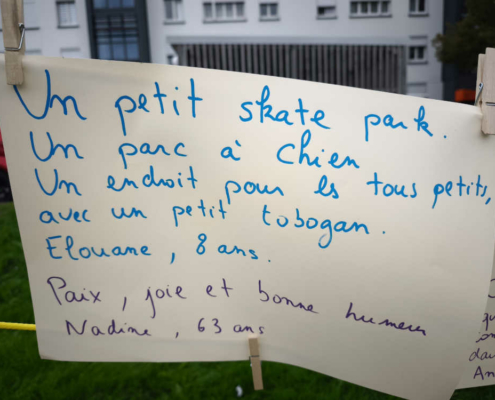 Un petit skate park.
Un parc à chien
Un endroit pour les tous petits,
avec un petit tobogan.
Elouane, 8 ans.
Paix, joie et bonne humeur
Nadine, 63 ans
qu
dau
An